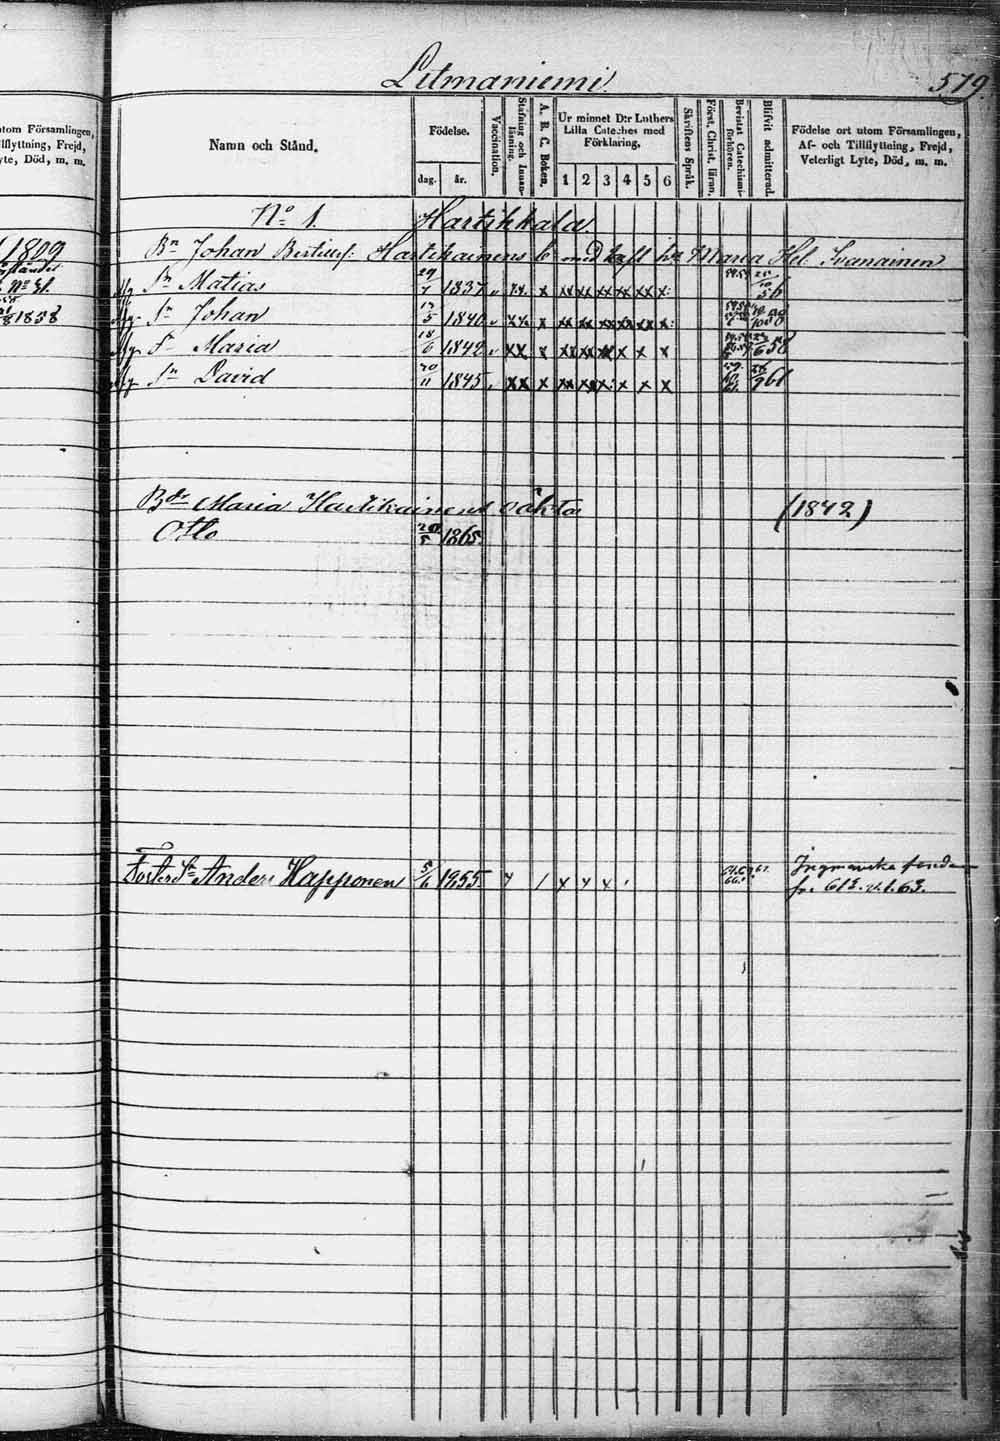 Litmaniemi.
579.
utom Församlingen,
Tillflyttning, Frejd,
Lyte, Död, m. m.
Namn och Stånd.
Födelse.
dag.
år.
Vaccination.
Stafning och Innanläsning.
A. B. C. Boken.
Ur minnet D:r Luthers
Lilla Cateches med
Förklaring,
1 2 3 4 5 6
Skriftens Språk.
Först. Christ. läran.
Bevistat Catechismiförhören.
Blifvit admitterad.
Födelse ort utom Församlingen,
Af- och Tillflyttning, Frejd,
Veterligt Lyte, Död, m. m.
1809
No 1. Hartikkala.
Bn Johan Bertilss: Hartikainens b med Maria Hel. Ivanainen
Sn Matias 29/7 1837 x x x xx xx xx xx xx x
1838
Sn Johan 13/5 1840 xx x xx xx xx xx xx x
Maria 18/6 1842 xx x xx xx xx x x x
Sn David 20/11 1845 xx x xx xx x x x x
Bdr Maria Hartikainens oäkta (1842)
Otto 20/5 1865.
Foster Sn Anders Happonen 5/6 1855. x / x x x
613. 63.